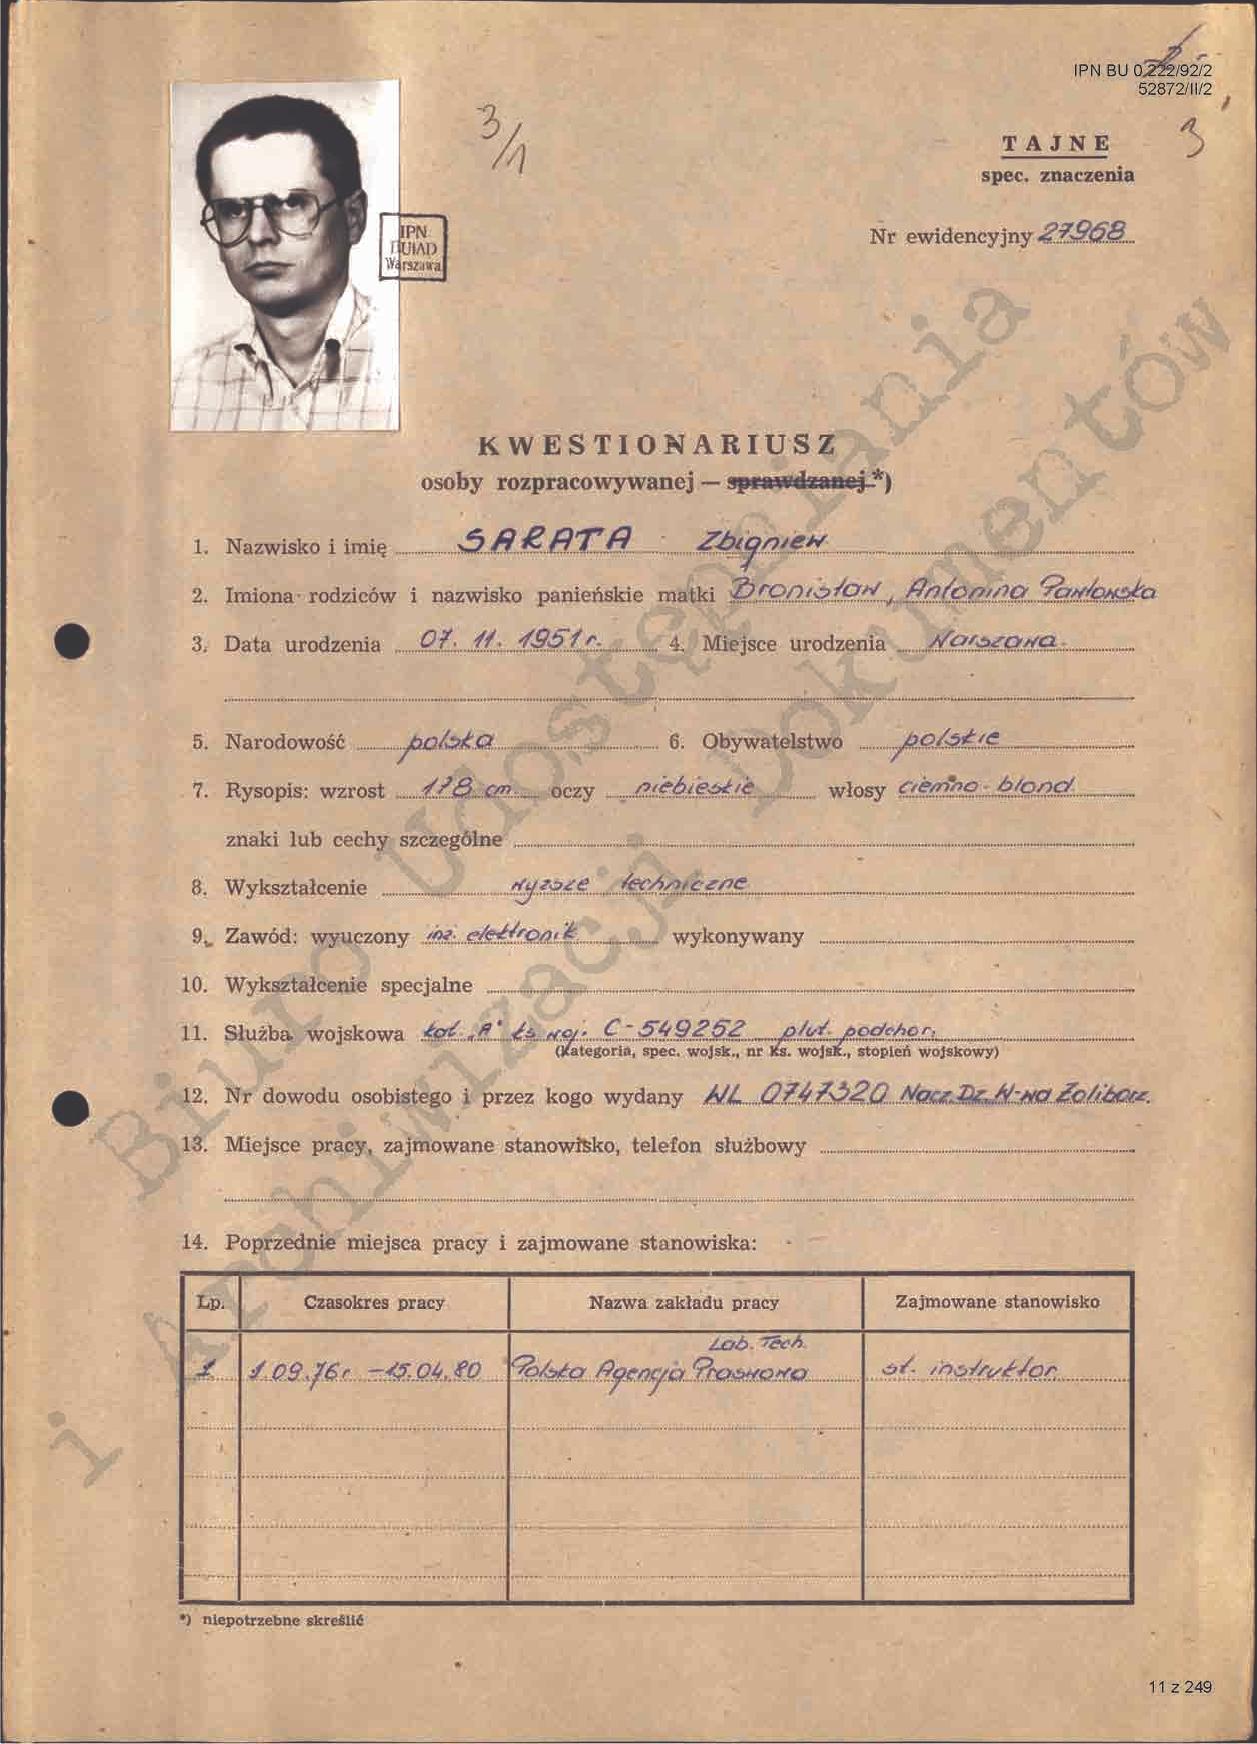 IPN BU 0 222/92/2
52872/II/2
3
3/1
TAJNE
spec. znaczenia
Nr ewidencyjny 27968
IPN
BUiAD
Warszawa
KWESTIONARIUSZ
osoby rozpracowywanej — sprawdzanej *)
1. Nazwisko i imię SARATA Zbigniew
2. Imiona rodziców i nazwisko panieńskie matki Bronisław, Antonina Pawłowska
3. Data urodzenia 07. 11. 1951 r. 4. Miejsce urodzenia Warszawa.
5. Narodowość polska 6. Obywatelstwo polskie
7. Rysopis: wzrost 178 cm. oczy niebieskie włosy ciemno-blond.
znaki lub cechy szczególne
8. Wykształcenie wyższe techniczne
9. Zawód: wyuczony inż. elektronik wykonywany
10. Wykształcenie specjalne
11. Służba wojskowa kat. „A" ks woj. C-549252 plut. podchor.
(kategoria, spec. wojsk., nr ks. wojsk., stopień wojskowy)
12. Nr dowodu osobistego i przez kogo wydany WL 0747320 Nacz. Dz. W-wa Żoliborz.
13. Miejsce pracy, zajmowane stanowisko, telefon służbowy
14. Poprzednie miejsca pracy i zajmowane stanowiska:
Lp. Czasokres pracy Nazwa zakładu pracy Zajmowane stanowisko
Lab. Tech.
1 1.09.76 r - 15.04.80 Polska Agencja Prasowa st. instruktor
*) niepotrzebne skreślić
Biuro Udostępniania
i Archiwizacji Dokumentów
11 z 249